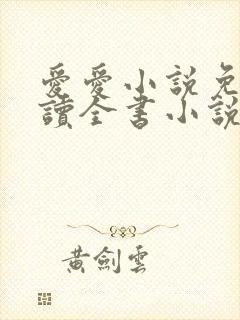 愛愛小説免
讀全書小說
黃劍雲